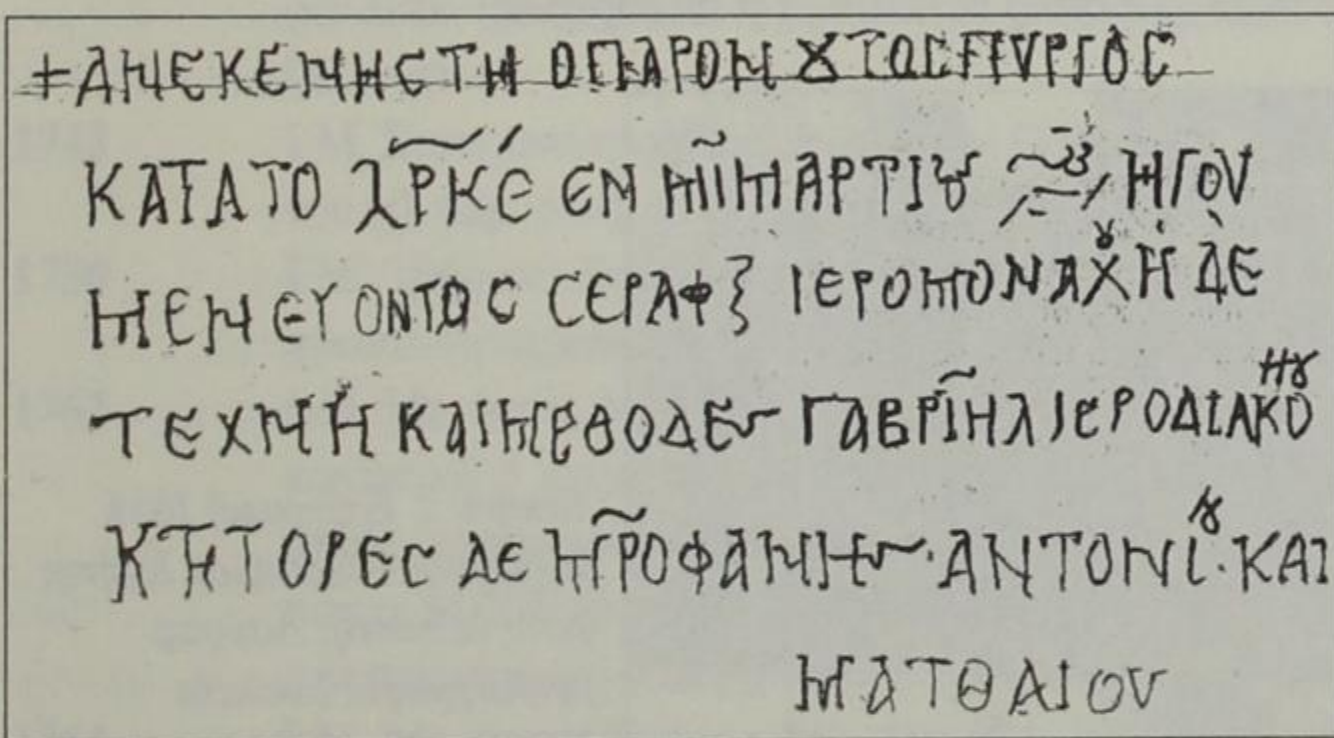 +ΑΝΕΚΕΝΗСΤΗ ΟΠΑΡΟΝ ȢΤΟСΠVΡΓΟС
ΚΑΤΑΤΟ ͵ΑΡΚΕ ΕΝ ΜΙ ΜΑΡΤΙȢ ΗΓΟV
ΜΕΝΕΥΟΝΤΟС СΕΡΑΦ ΙΕΡΟΜΟΝΑΧȢ Η ΔΕ
ΤΕΧΝΗ ΚΑΙ ΜΕΘΟΔΕ ΓΑΒΡΙΗΛ ΙΕΡΟΔΙΑΚΟΝȢ
ΚΤΗΤΟΡΕС ΔΕ ΜΡΟΦΑΝΗ· ΑΝΤΟΝΙȢ· ΚΑΙ
ΜΑΤΘΑΙΟV